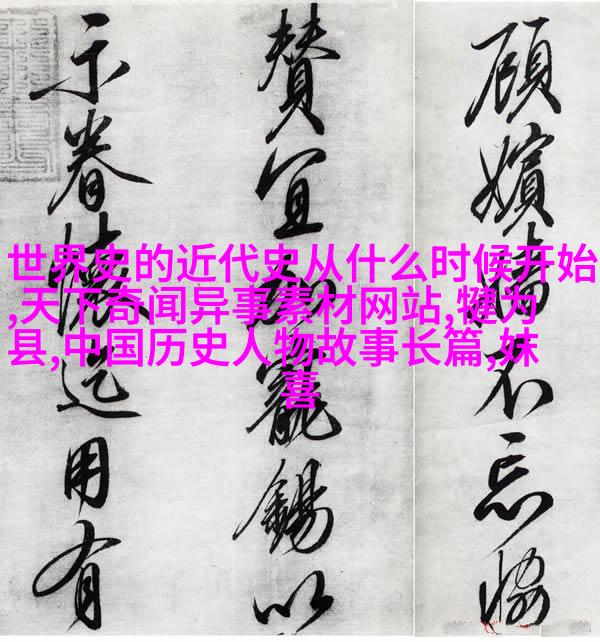 世界史的近代史从什么时候开始
,天下奇闻异事素材网站,犍为
县,中国历史人物故事长篇,妺
喜
顧嬪不忘協
賛宜加寵錫以
示眷懷是用有